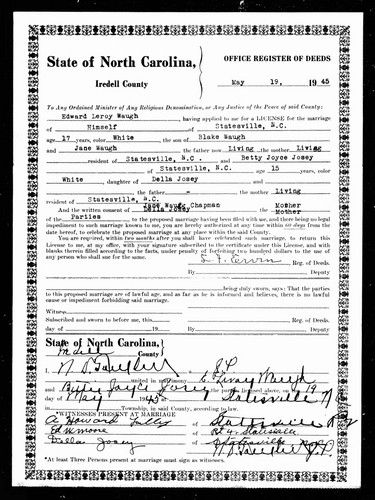 State of North Carolina,
Iredell County
OFFICE REGISTER OF DEEDS
May 19, 1945
To Any Ordained Minister of Any Religious Denomination, or Any Justice of the Peace of said County:
Edward Leroy Waugh, having applied to me for a LICENSE for the marriage
of Himself of Statesville, N.C.
age 17 years, color White the son of Blake Waugh
and Jane Waugh the father now Living the mother Living
resident of Statesville, N.C. and Betty Joyce Josey
of Statesville, N.C. age 15 years, color
White, daughter of Della Josey
and the father - the mother Living
resident of Statesville, N.C.
Jane Waugh Chapman Mother
And the written consent of Della Josey Mother
Parties to the proposed marriage having been filed with me, and there being no legal
impediment to such marriage known to me, you are hereby authorized at any time within 60 days from the
date hereof, to celebrate the proposed marriage at any place within the said County.
You are required, within two months after you shall have celebrated such marriage, to return this
License to me, at my office, with your signature subscribed to the certificate under this License, and with
blanks therein filled according to the facts, under penalty of forfeiting two hundred dollars to the use of
any person who shall sue for the same.
Reg. of Deeds.
By Deputy
being duly sworn, says: That the parties
to this proposed marriage are of lawful age, and so far as he is informed and believes, there is no lawful
cause or impediment forbidding said marriage.
Witness
Subscribed and sworn to before me, this
day of 19 Reg. of Deeds.
By Deputy
State of North Carolina,
Iredell County
J.P.
united in matrimony E. Leroy Waugh
and Betty Joyce Josey the parties licensed above, on 19
day of May 1945 Statesville N.C.
in Township, in said County, according to law.
WITNESSES PRESENT AT MARRIAGE
A Howard Statesville
Statesville
Della Josey Statesville
J.P.
*At least Three Persons must sign at marriage must sign as witnesses.